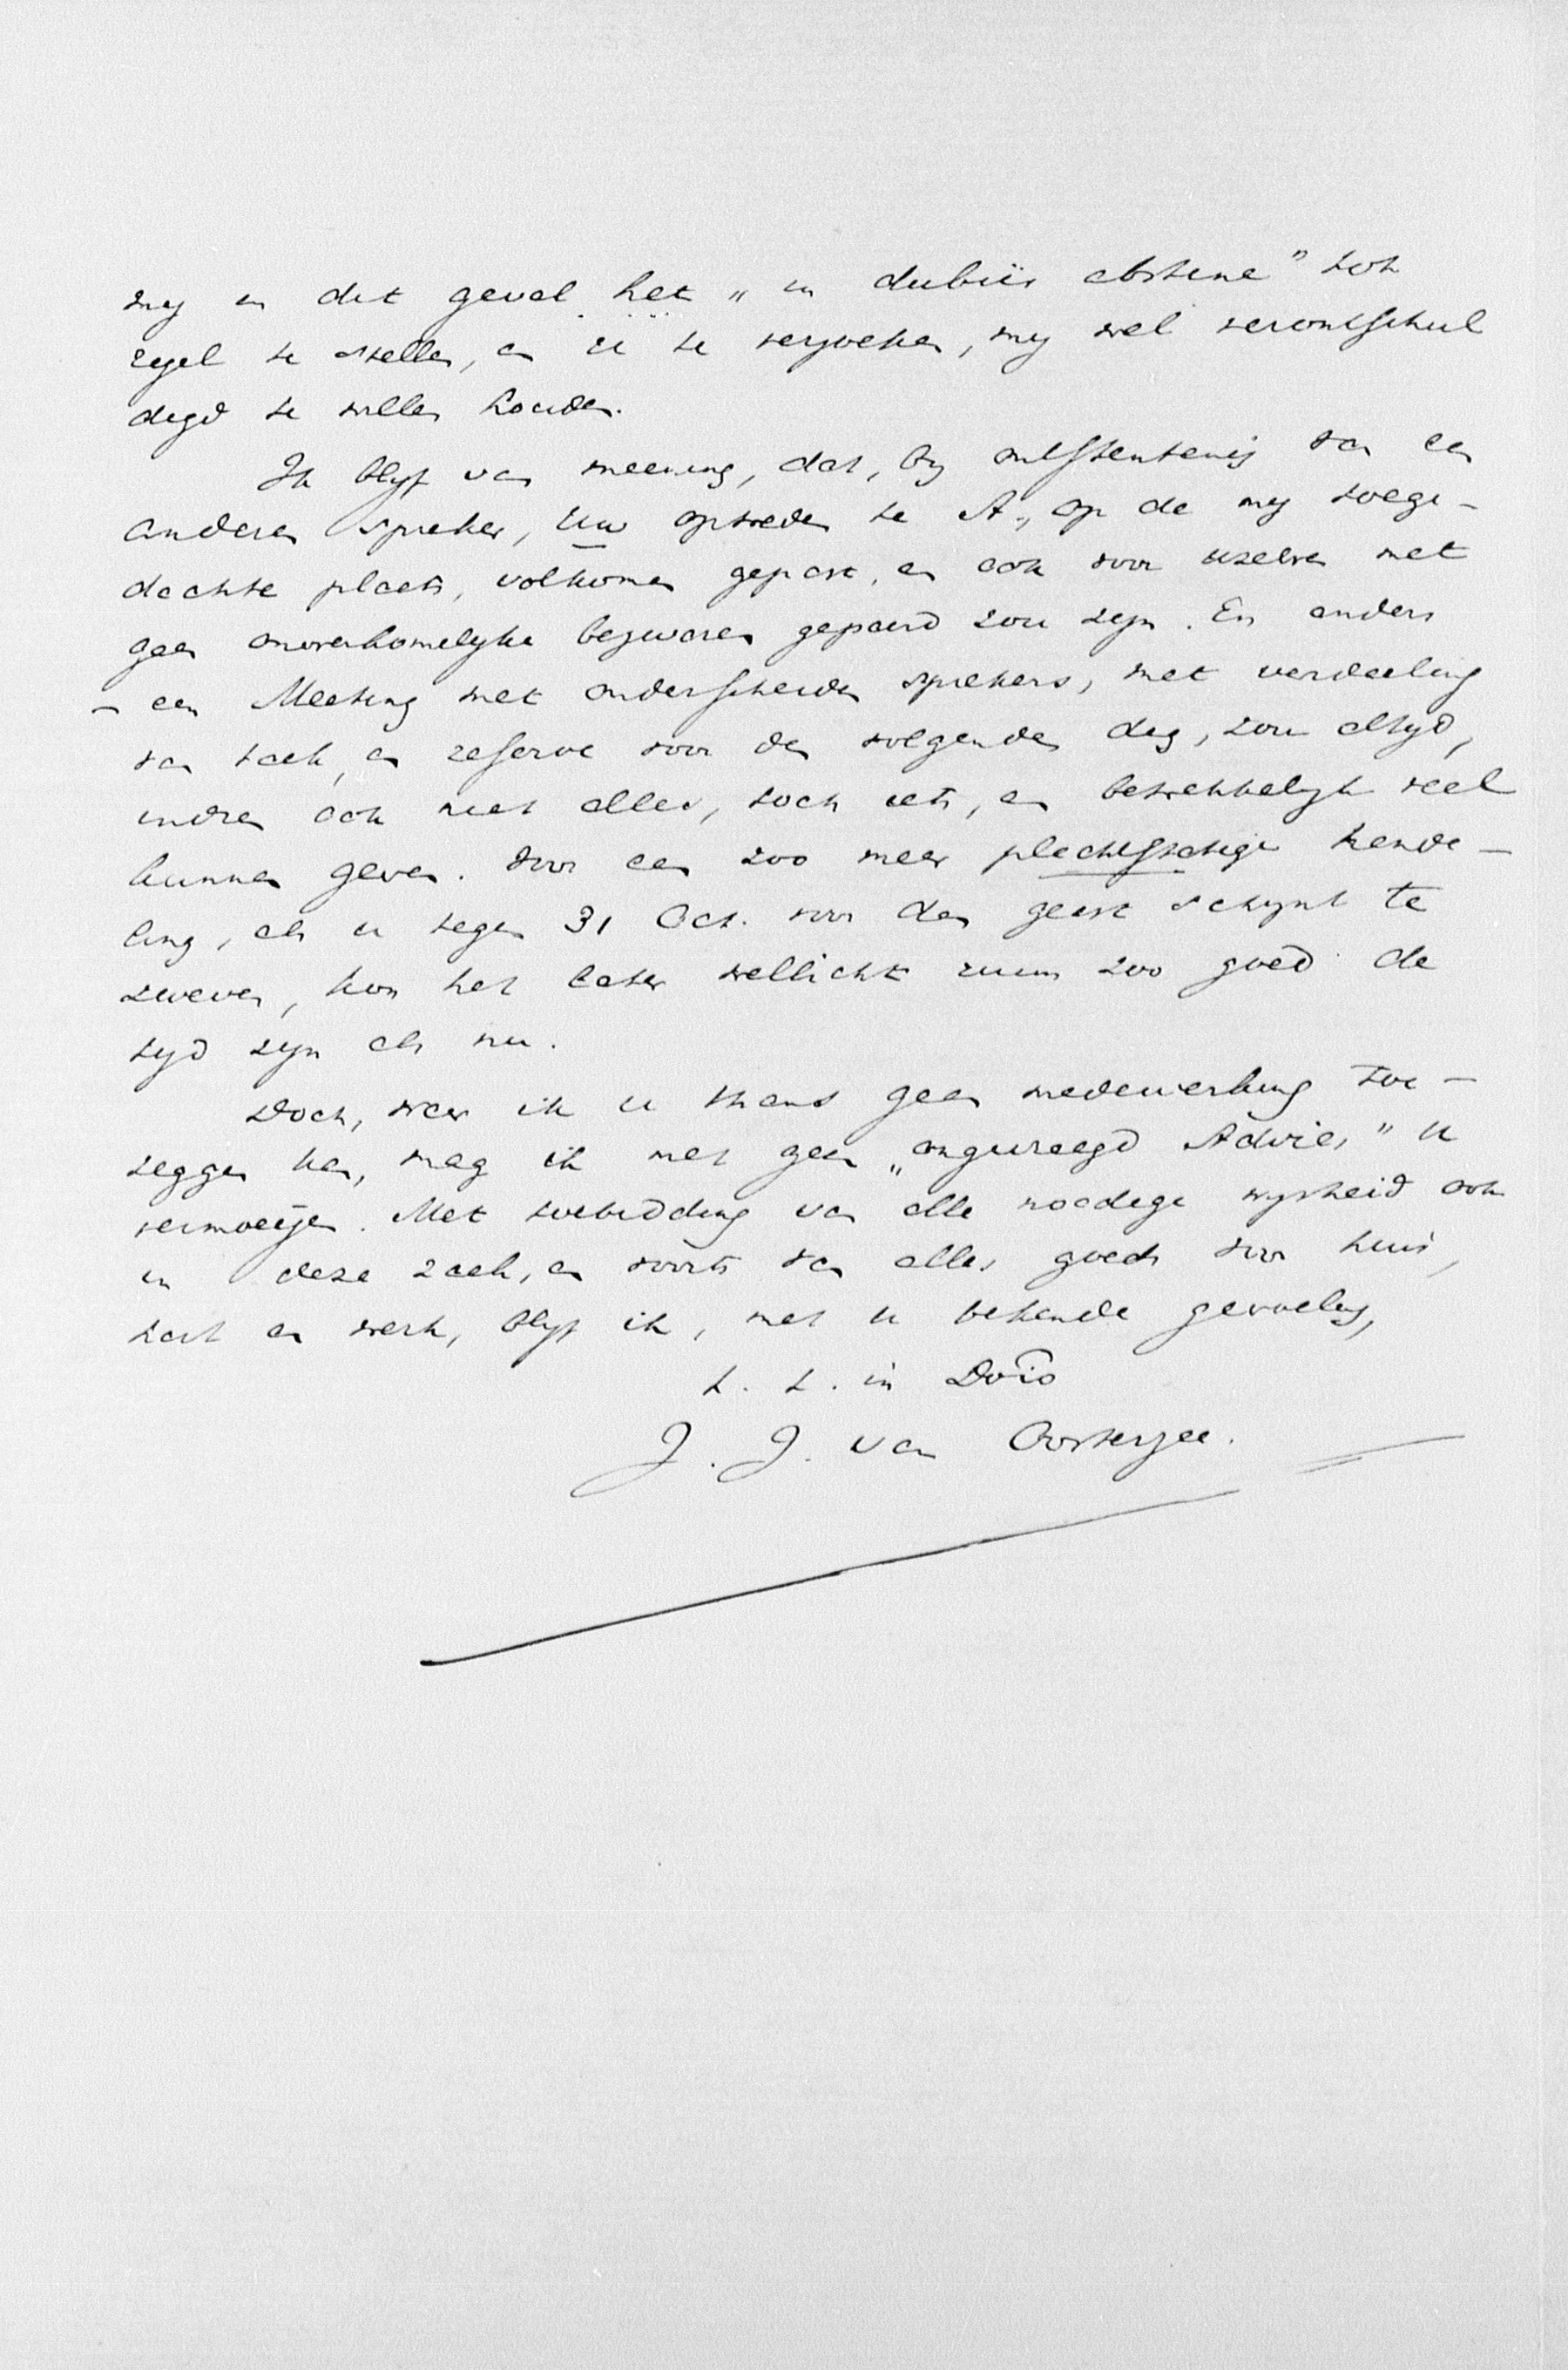 my in dit geval het „in dubiïs abstine" tot
regel te stellen, en U te verzoeken, my wel verontschul
digd te willen houden.
Ik blyf van meening, dat, by ontstentenis van een
anderen spreker, Uw optreden te A., op de my toege-
dachte plaats, volkomen gepast, en ook voor uzelven met
geen onoverkomelyke bezwaren gepaard zou zyn. En anders
- een Meeting met onderscheiden sprekers, met verdeeling
van taak, en reserve voor den volgenden dag, zou altyd,
indien ook niet alles, toch iets, en betrekkelyk veel
kunnen geven. Voor een zoo meer plechtstatige hande-
ling, als U tegen 31 Oct. voor den geest schynt te
zweven, kon het later wellicht ruim zoo goed de
tyd zyn als nu.
Doch, waar ik U thans geen medewerking toe-
zeggen kan, mag ik met geen „ongevraagd Advies" U
vermoeijen. Met toebidding van alle noodige wysheid ook
in deze zaak, en voorts van alles goeds voor huis,
hart en werk, blyf ik, met U bekende gevoelens,
t. t. in Dno
J. J. van Oosterzee.